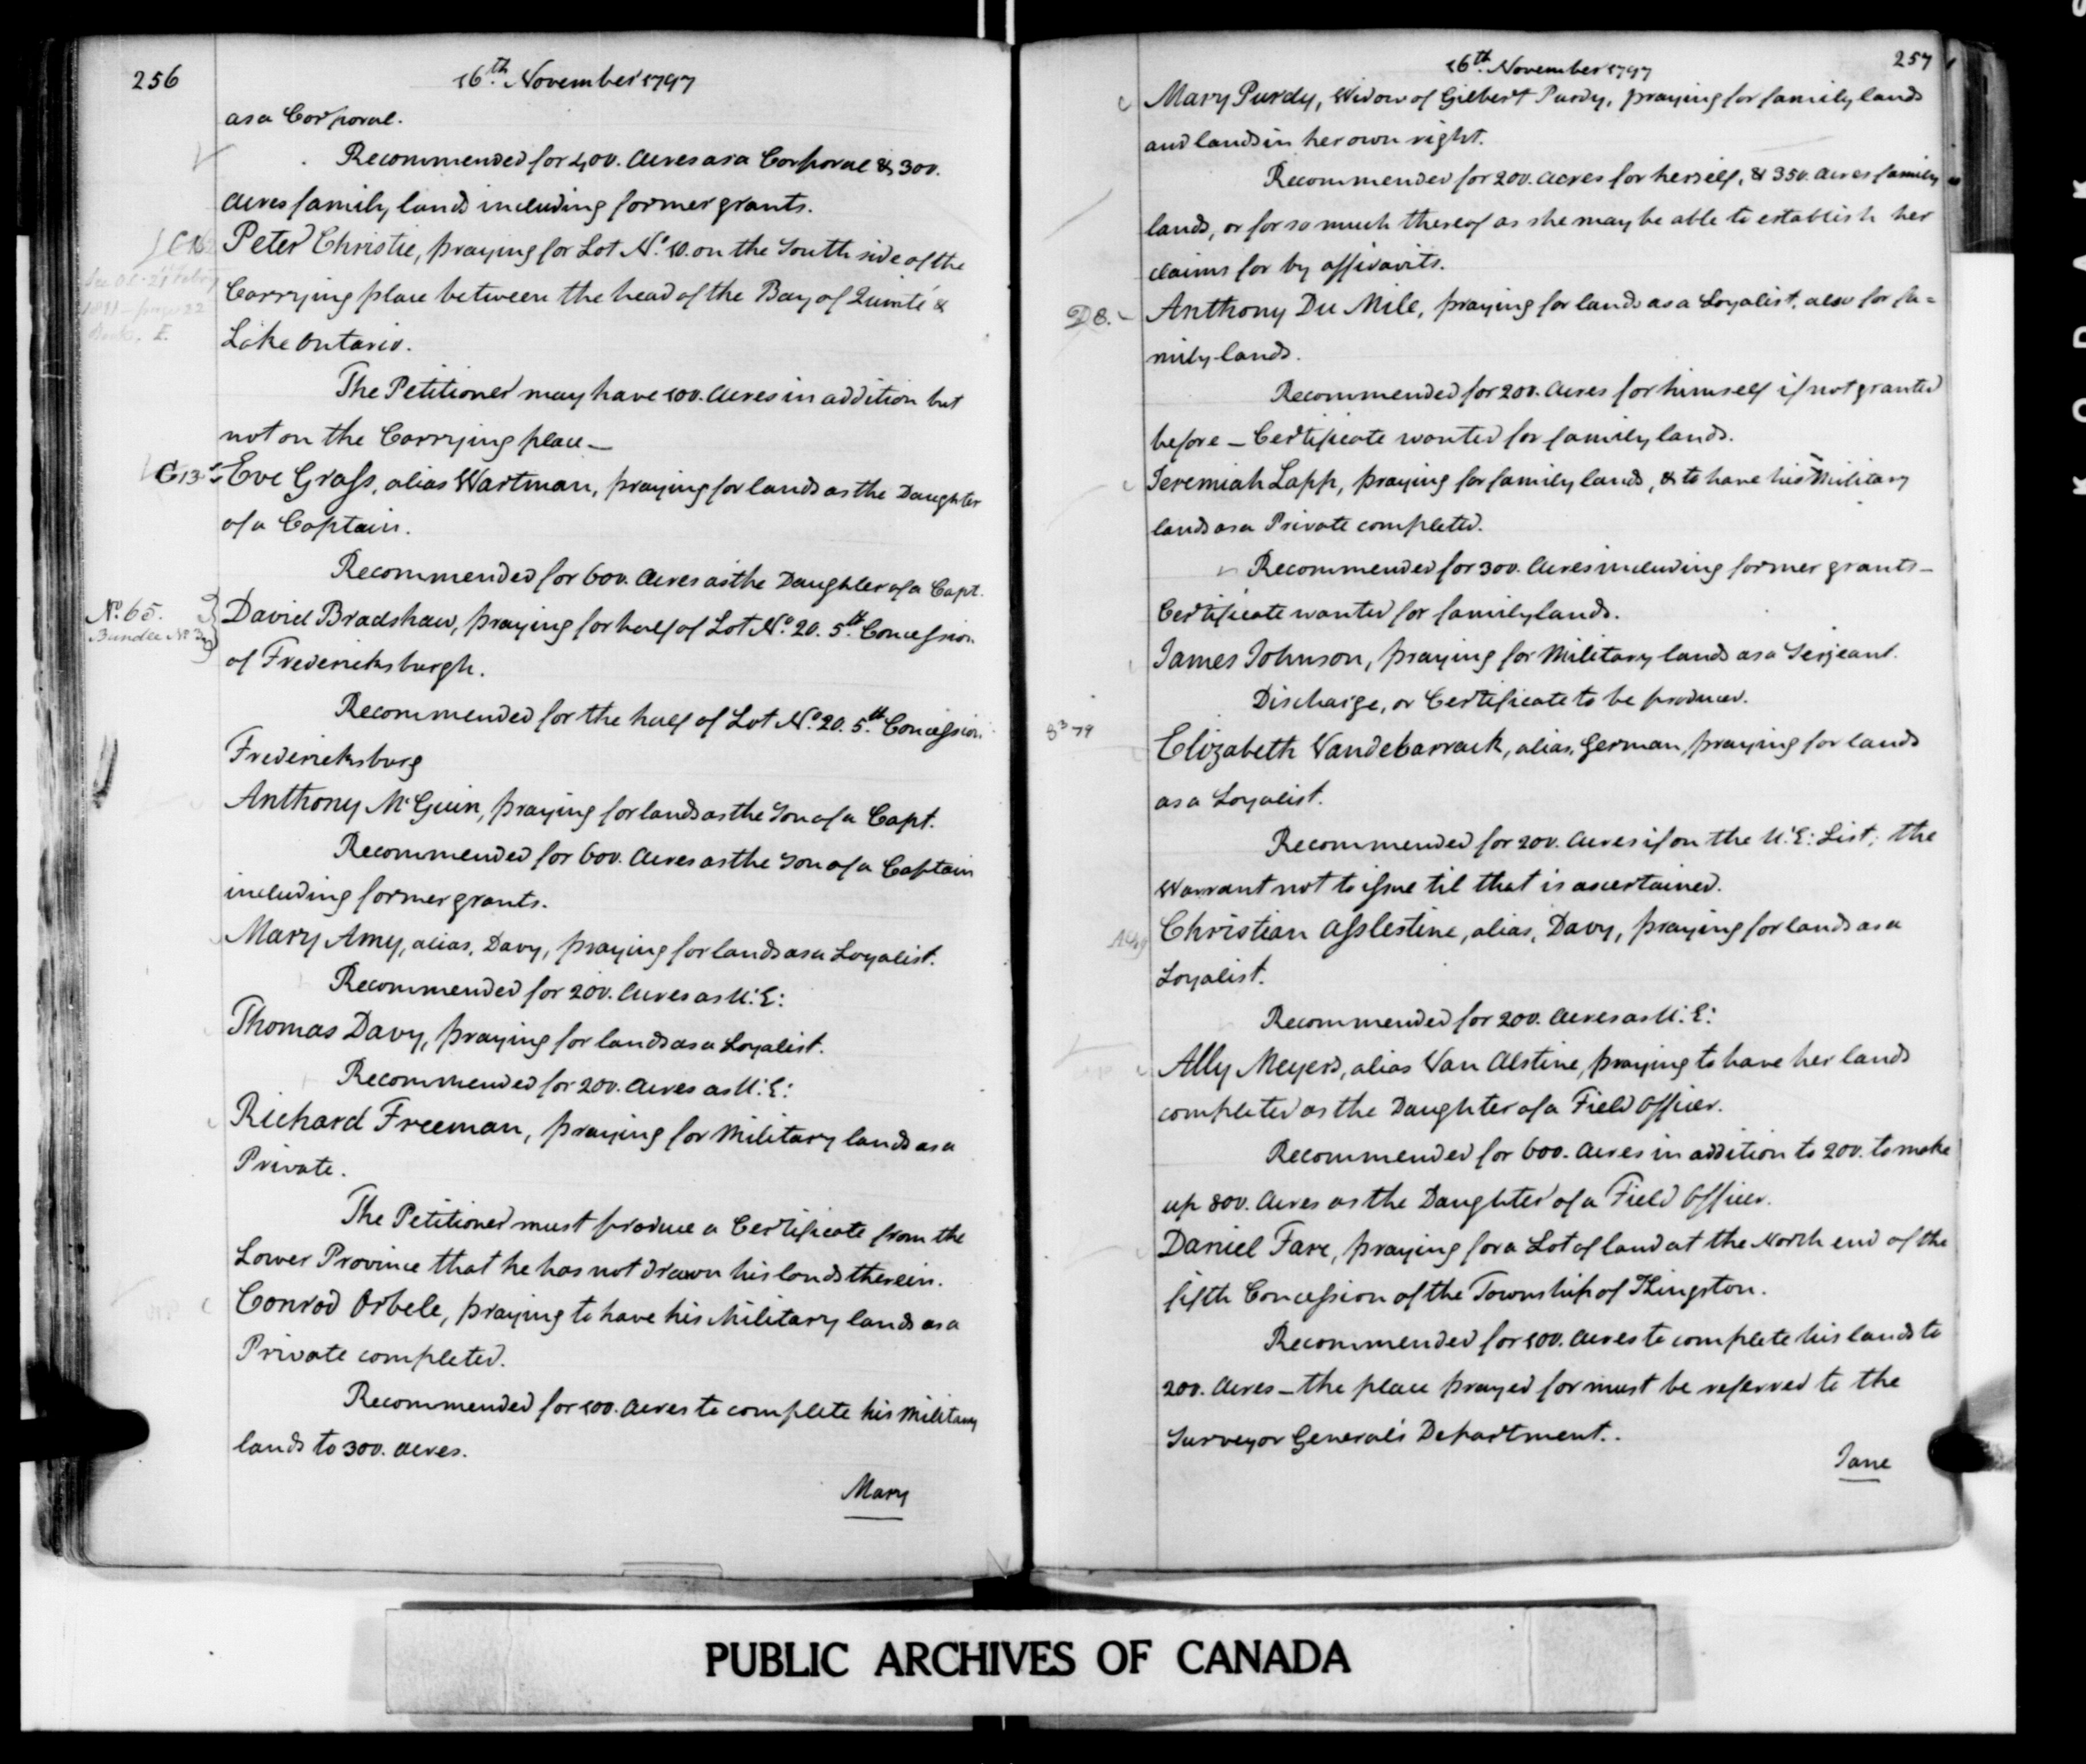 256
16th November 1797
as a Corporal.
Recommended for 400. Acres as a Corporal & 300.
Acres family lands including former grants.
Peter Christie, praying for Lot No. 10. on the South side of the
Carrying place between the head of the Bay of Quinté &
Lake Ontario.
The Petitioner may have 100. Acres in addition but
not on the Carrying place—
G13 Eve Grass, alias Wartman, praying for lands as the Daughter
of a Captain.
Recommended for 600. Acres as the Daughter of a Capt.
No. 65.
Bundle No. 2
David Bradshaw, praying for half of Lot No. 20. 5th Concession
of Fredericksburgh.
Recommended for the half of Lot No. 20. 5th Concession
Fredericksburg
Anthony McGuin, praying for lands as the Son of a Capt.
Recommended for 600. Acres as the Son of a Captain
including former grants.
Mary Amy, alias, Davy, praying for lands as a Loyalist.
Recommended for 200. Acres as U: E:
Thomas Davy, praying for lands as a Loyalist.
Recommended for 200. Acres as U: E:
Richard Freeman, praying for Military lands as a
Private.
The Petitioner must produce a Certificate from the
Lower Province that he has not drawn his lands therein.
Conrod Orbele, praying to have his Military lands as a
Private completed.
Recommended for 100. Acres to complete his Military
lands to 300. acres.
Mary
257
16th November 1797
Mary Purdy, Widow of Gilbert Purdy, praying for family lands
and lands in her own right.
Recommended for 200. acres for herself, & 350. Acres family
lands, or for so much thereof as she may be able to establish her
claims for by affidavits.
D8. Anthony Du Mile, praying for lands as a Loyalist, also for fa=
mily lands.
Recommended for 200. Acres for himself if not granted
before — Certificate wanted for family lands.
Jeremiah Lapp, praying for family lands, & to have his Military
lands as a Private completed.
Recommended for 300. Acres including former grants—
Certificate wanted for family lands.
James Johnson, praying for Military lands as a Serjeant.
Discharge, or Certificate to be produced.
Elizabeth Vandebarrack, alias, German, praying for lands
as a Loyalist.
Recommended for 200. Acres if on the U: E: List; the
Warrant not to issue til that is ascertained.
Christian Asslestine, alias, Davy, praying for lands as a
Loyalist.
Recommended for 200. Acres as U: E:
Ally Meyers, alias Van Alstine, praying to have her lands
completed as the Daughter of a Field Officer.
Recommended for 600. Acres in addition to 200. to make
up 800. Acres as the Daughter of a Field Officer.
Daniel Fare, praying for a Lot of land at the North end of the
fifth Concession of the Township of Kingston.
Recommended for 100. Acres to complete his lands to
200. Acres — the place prayed for must be referred to the
Surveyor General's Department..
Jane
PUBLIC ARCHIVES OF CANADA